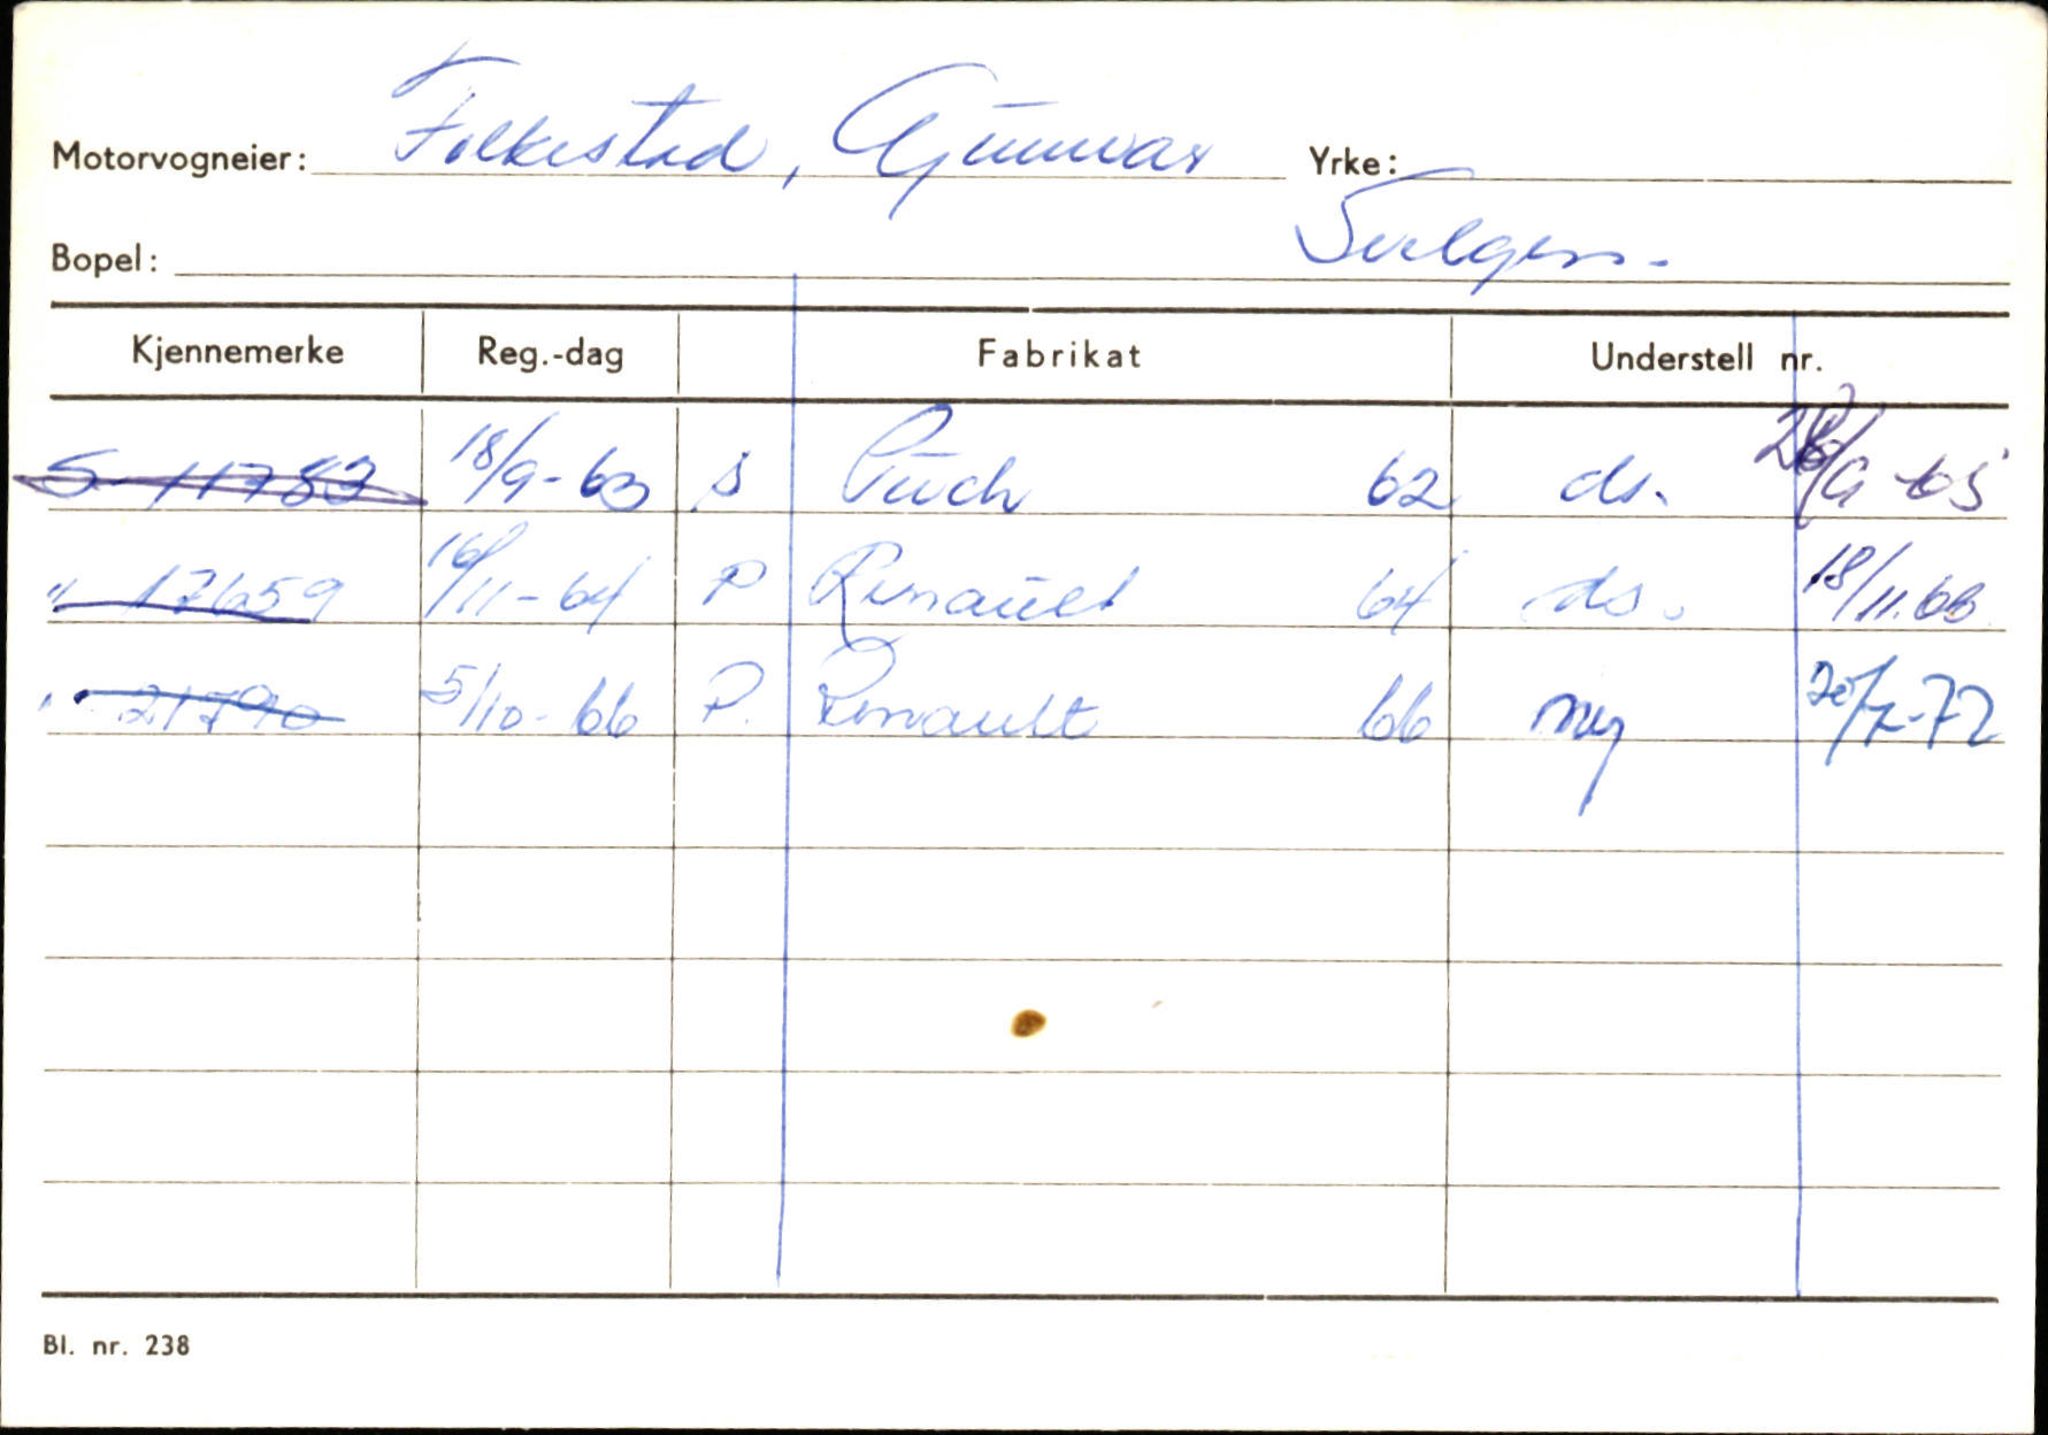 Motorvogneier: Folkestad, Gunnvar Yrke:
Bopel: Svelgen.
Kjennemerke Reg.-dag Fabrikat Understell nr.
S 11783 18/9-63 s Puch 62 ds. /9-65
" 17659 16/11-64 P Renault 64 ds. 18/11.66
" 21790 5/10-66 P. Renault 66 ny 20/7-72
Bl. nr. 238